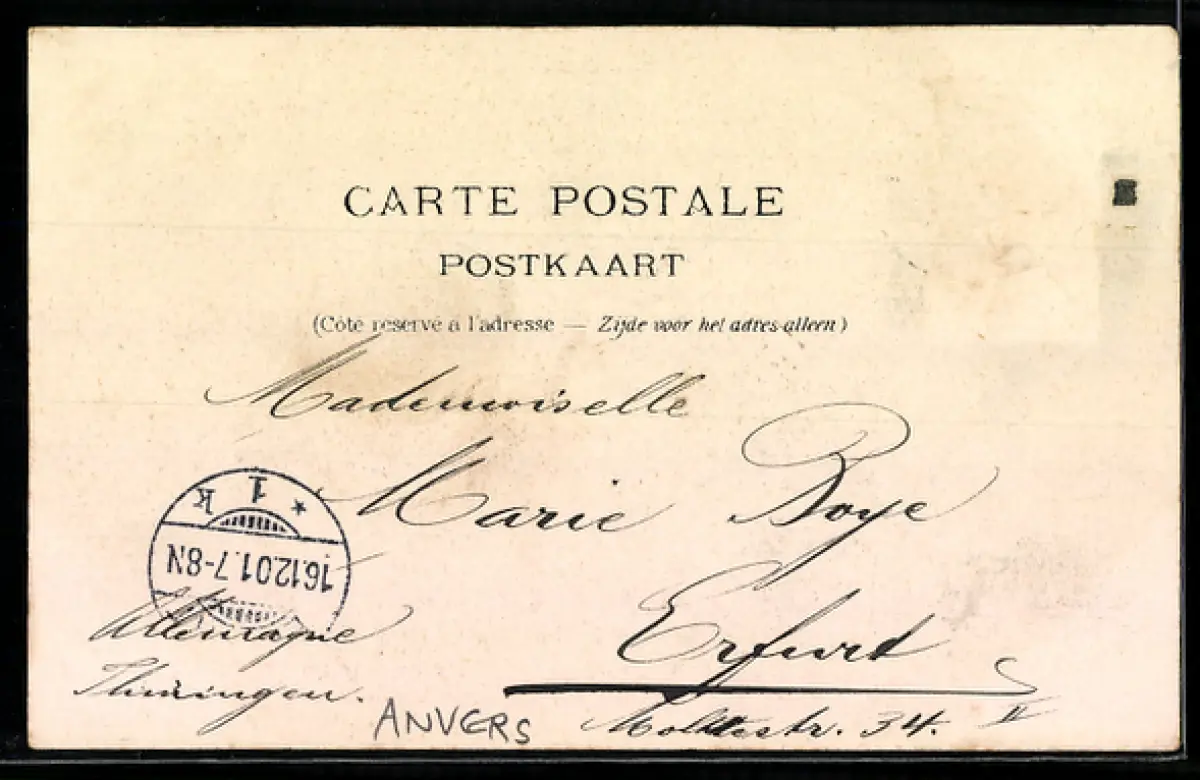 CARTE POSTALE
POSTKAART
(Côté réservé à l'adresse — Zijde voor het adres alleen)
Mademoiselle
Marie Boye
Erfurt
Moltkestr. 34. II
Allemagne
Thüringen.
ANVERS
* 1 k
16.12.01.7-8N